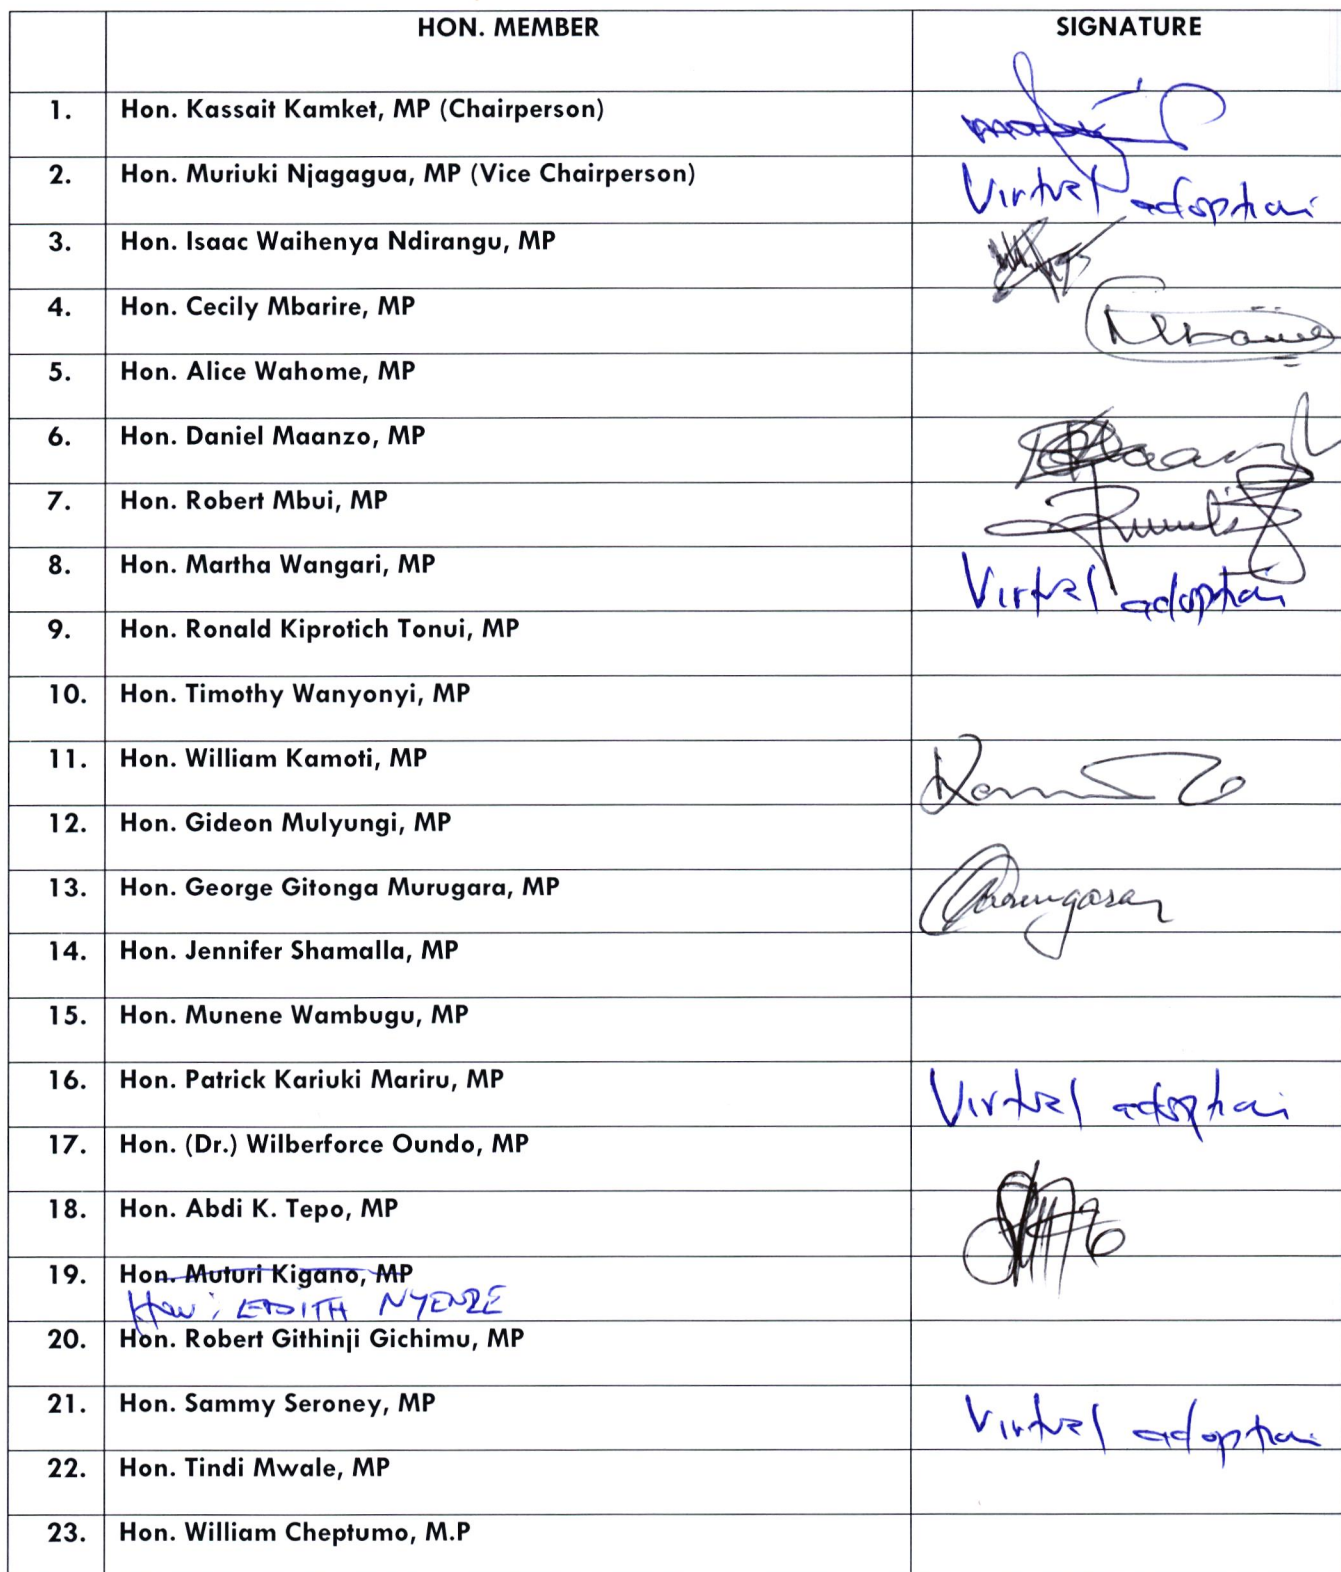 HON. MEMBER SIGNATURE
1. Hon. Kassait Kamket, MP (Chairperson)
2. Hon. Muriuki Njagagua, MP (Vice Chairperson) Virtual adoption
3. Hon. Isaac Waihenya Ndirangu, MP
4. Hon. Cecily Mbarire, MP
5. Hon. Alice Wahome, MP
6. Hon. Daniel Maanzo, MP
7. Hon. Robert Mbui, MP
8. Hon. Martha Wangari, MP Virtual adoption
9. Hon. Ronald Kiprotich Tonui, MP
10. Hon. Timothy Wanyonyi, MP
11. Hon. William Kamoti, MP
12. Hon. Gideon Mulyungi, MP
13. Hon. George Gitonga Murugara, MP
14. Hon. Jennifer Shamalla, MP
15. Hon. Munene Wambugu, MP
16. Hon. Patrick Kariuki Mariru, MP Virtual adoption
17. Hon. (Dr.) Wilberforce Oundo, MP
18. Hon. Abdi K. Tepo, MP
19. Hon. Muturi Kigano, MP
Hon. EDITH NYENZE
20. Hon. Robert Githinji Gichimu, MP
21. Hon. Sammy Seroney, MP Virtual adoption
22. Hon. Tindi Mwale, MP
23. Hon. William Cheptumo, M.P